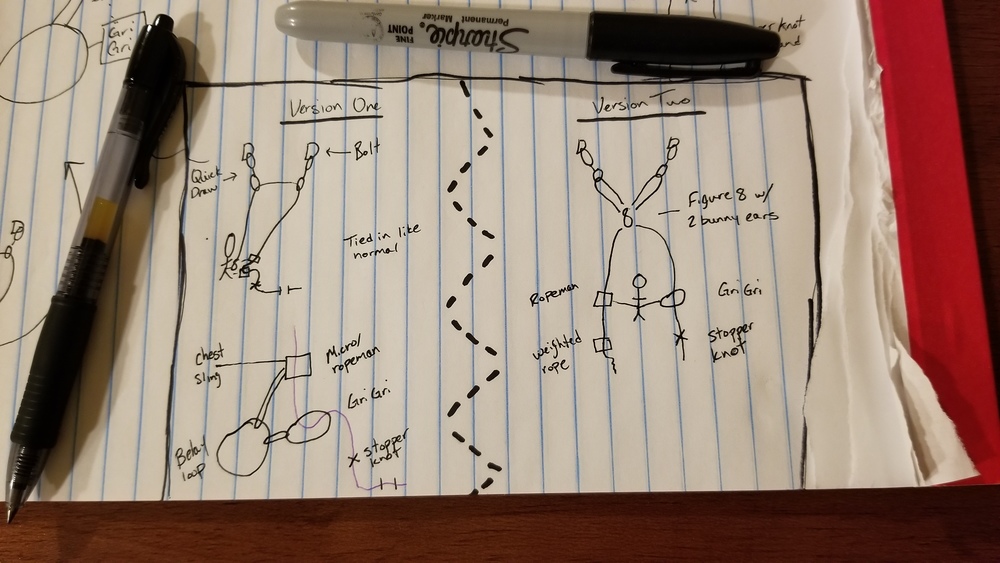 Gri
Gri
Sharpie.
FINE
POINT
Permanent
Marker
knot
and
Version One
Bolt
Quick
Draw
Tied in like
normal
chest
sling
Micro/
ropeman
Gri Gri
Belay
loop
stopper
knot
Version Two
8
Figure 8 w/
2 bunny ears
Ropeman
Gri Gri
weighted
rope
stopper
knot